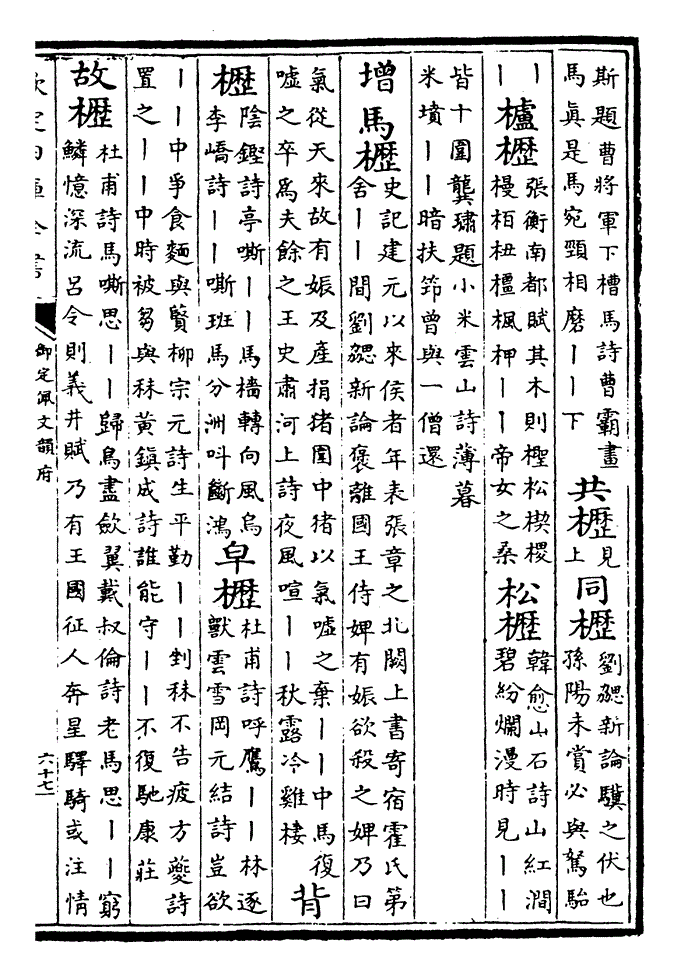 斯題曹將軍下槽馬詩曹霸畫
馬真是馬宛頸相磨丨丨下
共櫪
見
上
同櫪
劉勰新論驥之伏也
孫陽未賞必與駑駘
丨
丨
櫨櫪
張衡南都賦其木則檉松楔㮨
槾栢杻橿楓柙丨丨帝女之桑
松櫪
韓愈山石詩山紅澗
碧紛爛漫時見丨丨
皆十圍龔璛題小米雲山詩薄暮
米墳丨丨暗扶筇曾與一僧還
增馬櫪
史記建元以來侯者年表張章之北闕上書寄宿霍氏第
舍丨丨間劉勰新論褒離國王侍婢有娠欲殺之婢乃曰
氣從天來故有娠及產捐猪圈中猪以氣噓之棄丨丨中馬復
噓之卒為夫餘之王史肅河上詩夜風喧丨丨秋露冷雞棲
背
櫪
陰鏗詩亭嘶丨丨馬檣轉向風烏
李嶠詩丨丨嘶班馬分洲叫斷鴻
皁櫪
杜甫詩呼鷹丨丨林逐
獸雲雪岡元結詩豈欲
丨丨中爭食麵與賢柳宗元詩生平勤丨丨剉秣不告疲方夔詩
置之丨丨中時被芻與秣黃鎮成詩誰能守丨丨不復馳康莊
故櫪
杜甫詩馬嘶思丨丨歸鳥盡斂翼戴叔倫詩老馬思丨丨窮
鱗憶深流呂令則義井賦乃有王國征人奔星驛騎或注情
欽定四庫全書
御定佩文韻府
六十七